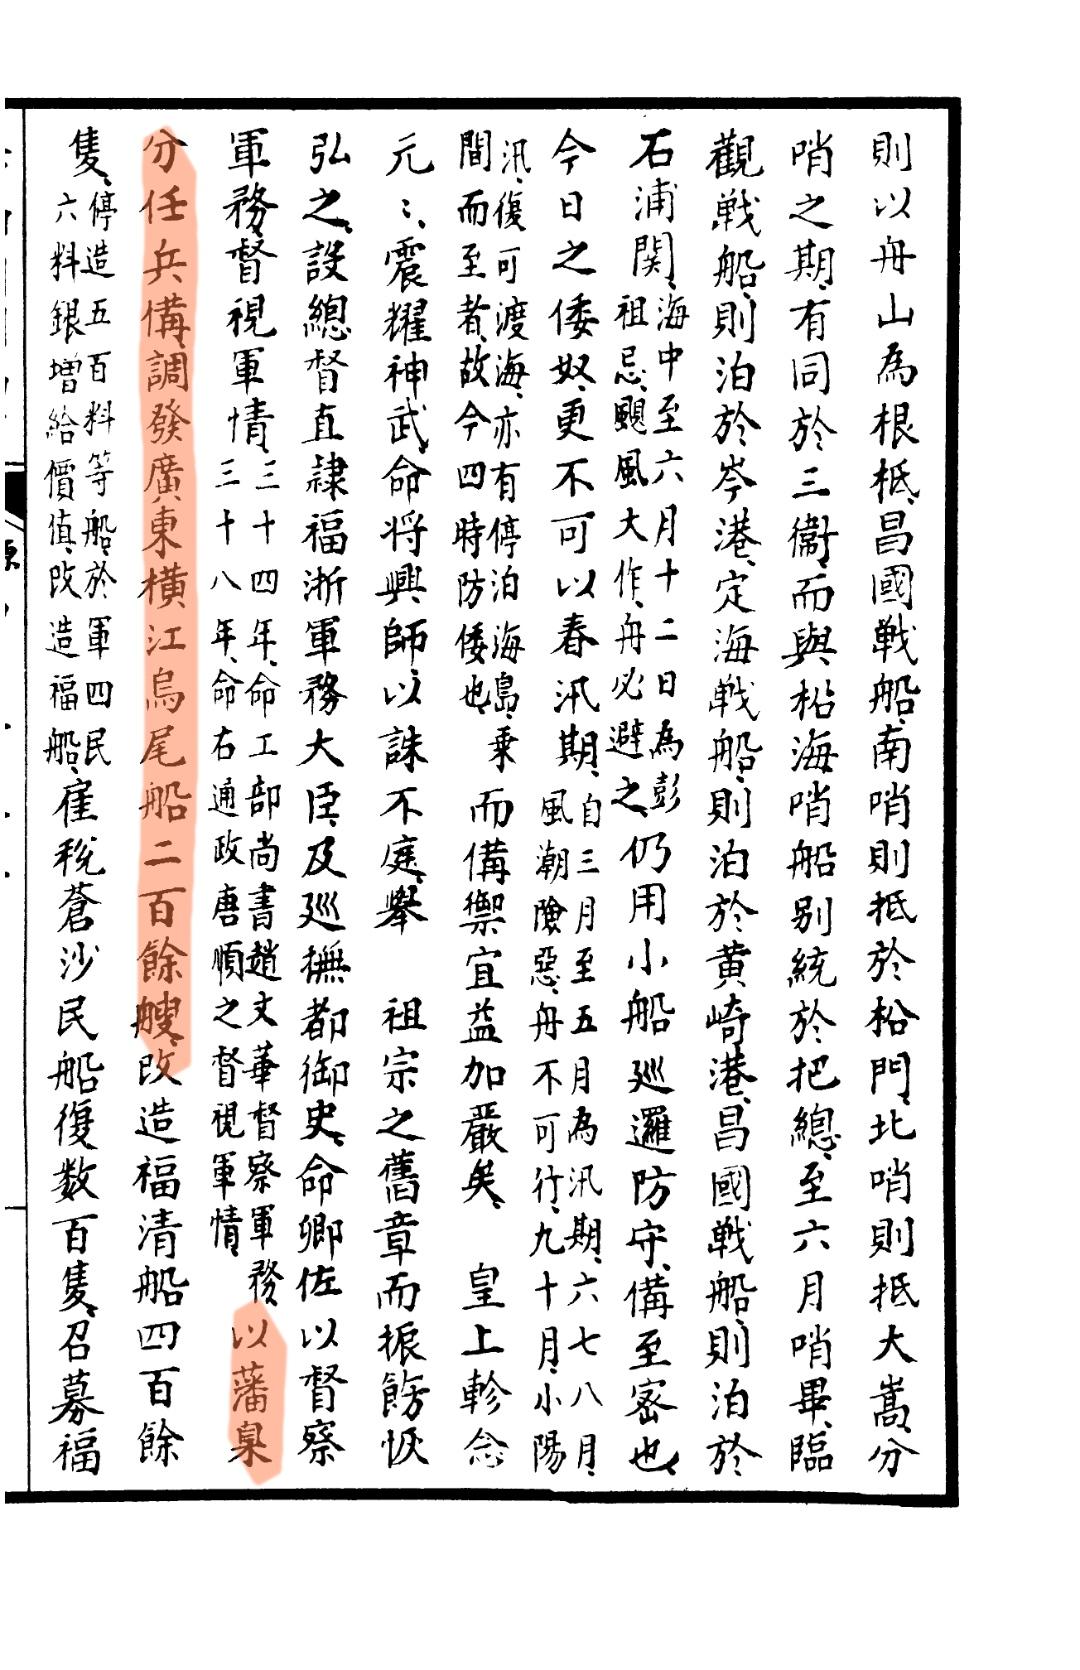 則以舟山為根柢、昌國戰船、南哨則抵於松門、北哨則抵大嵩、分
哨之期、有同於三衞、而與松海哨船别統於把總、至六月哨畢、臨
觀戰船、則泊於岑港、定海戰船、則泊於黄崎港、昌國戰船、則泊於
石浦関、
海中至六月十二日為彭
祖忌、颶風大作、舟必避之、
仍用小船廵邏防守、備至宻也、
今日之倭奴、更不可以春汛期、
自三月至五月為汛期、六七八月、
風潮險惡、舟不可行、九十月、小陽
汛、復可渡海、亦有停泊海島、乗
間而至者、故今四時防倭也、
而備禦宜益加嚴矣、　皇上軫念
元〻、震耀神武、命将興師、以誅不庭、舉　祖宗之舊章而振飭恢
弘之、設總督直隷福浙軍務大臣、及廵撫都御史、命卿佐以督察
軍務、督視軍情、
三十四年、命工部尚書趙文華督察軍務、
三十八年、命右通政唐順之督視軍情、
以藩臬
分任兵備、調發廣東横江烏尾船二百餘艘、改造福清船四百餘
隻、
停造五百料等船、於軍四民
六料銀增給價值、改造福船、
雇税蒼沙民船復、数百隻、召募福